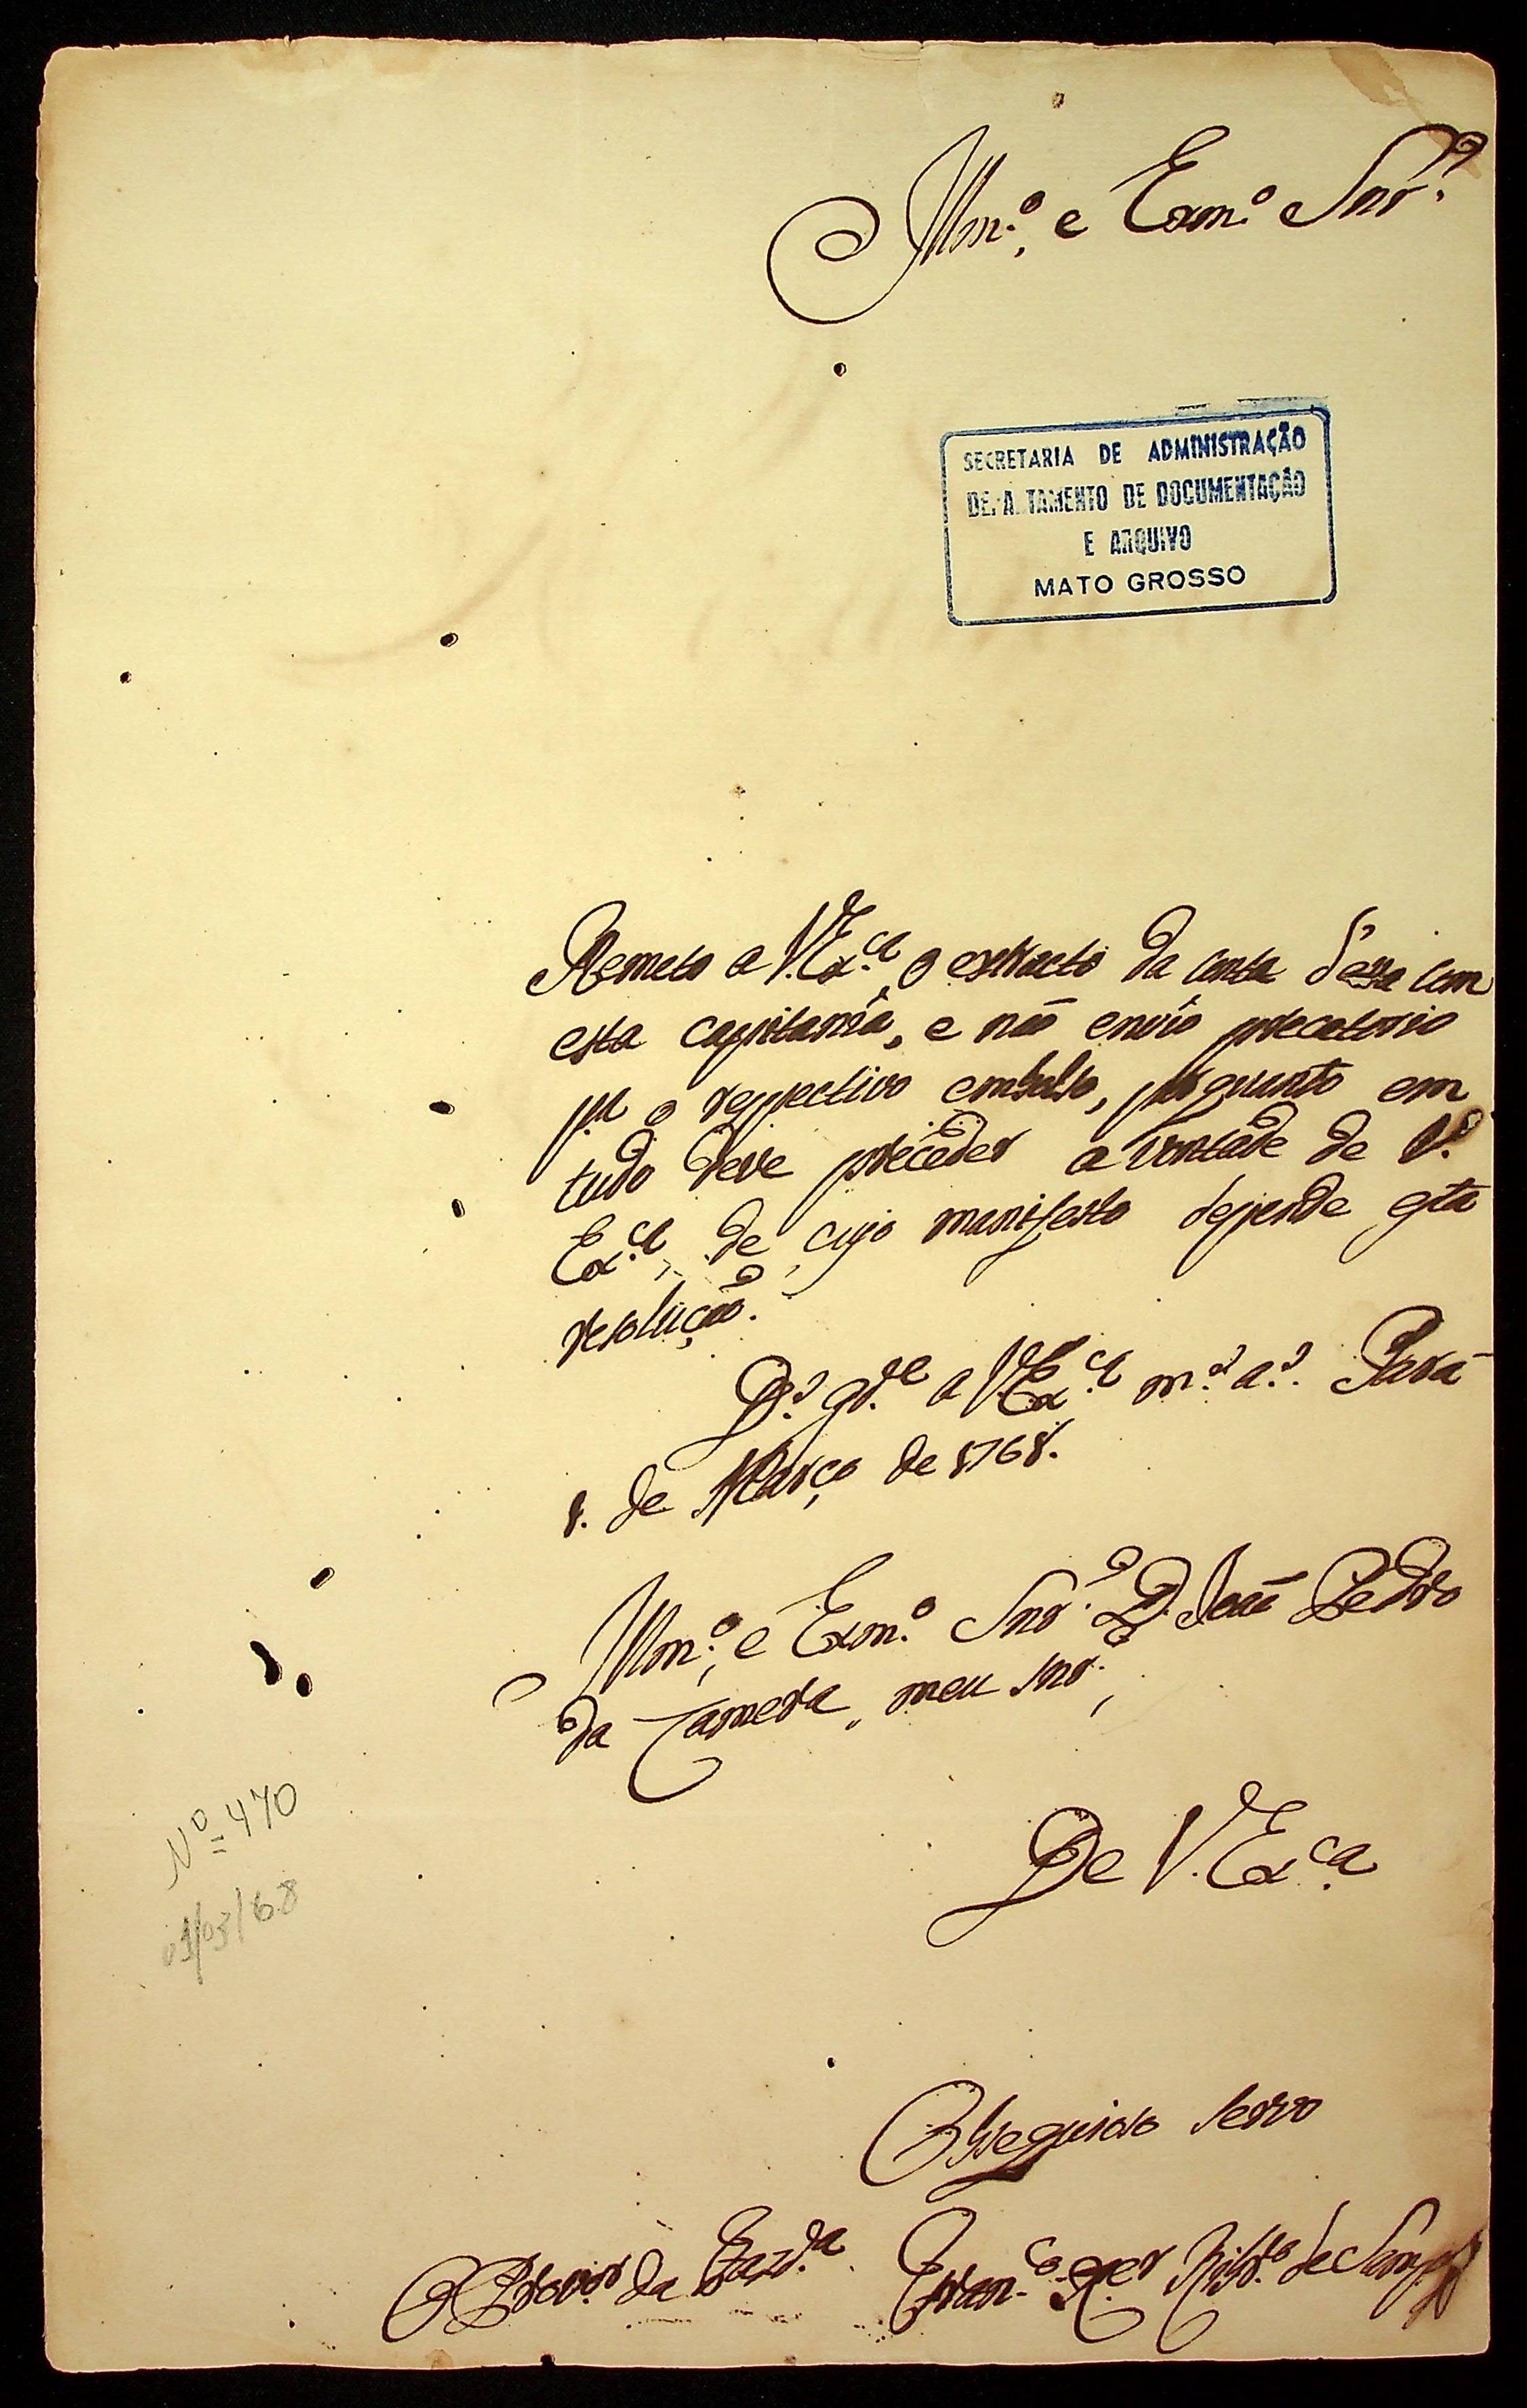 Illm.º, e Exm.º Snr.'
SECRETARIA DE ADMINISTRAÇÃO
DEPARTAMENTO DE DOCUMENTAÇÃO
E ARQUIVO
MATO GROSSO
Remeto a V. Ex.ca, o extracto da conta dessa com
esta capitania, e não envio precatorio
p.a o respectivo embolso, por quanto em
tudo deve preceder a vontade de V.
Ex.ca, de cujo manifesto depende esta
resolução.
D.s g.de a V. Ex.ca m.s a.s Pará
1. de Março de 1768.
Illm.º, e Exm.º Snr. D. João Pedro
da Camera, meu Snr.,
De V. Ex.ca
Nº 470
01/03/68
Obsequiozo servo
O Provor da Fazd.a Fran.co